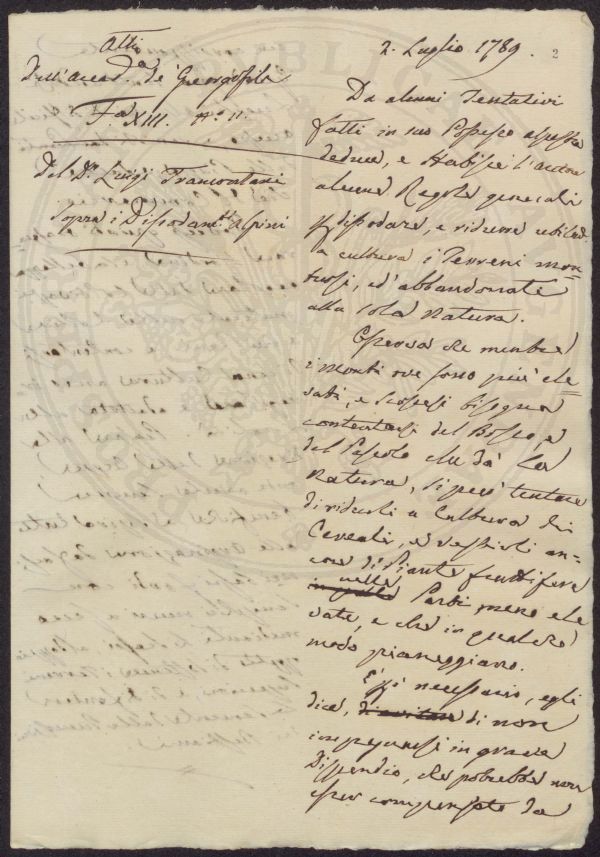 Atti
dell'Accad.a de' Georgofili
Fa XIII. No. 11.
Del Dr. Luigi Tramontani
Sopra i Dissodam.ti alpini
2. Luglio 1789.
2
Da alcuni Tentativi
fatti in suo Possesso alpestre
deduce, e stabilisce l'autore
alcune Regole generali
p dissodare, e ridurre
a cultura i Terreni mon=
tuosi, ed abbandonati
alla sola Natura.
Osserva che mentre
i monti ove sono più ele=
vati, e scoscesi bisogna
contentarsi del Bosco, e
del Pascolo che dà la
Natura, si può tentare
di ridurli a Cultura di
Cereali, e vestirli an=
cora di Piante fruttifere
nelle Parti meno ele
vate, e che in qualche
modo pianeggiano.
È poi necessario, egli
dice, di non
impegnarsi in grave
Dispendio, che potrebbe non
esser compensato da